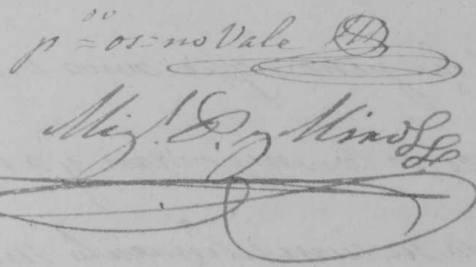 p = os = no Vale
Mig.l P. y Miró